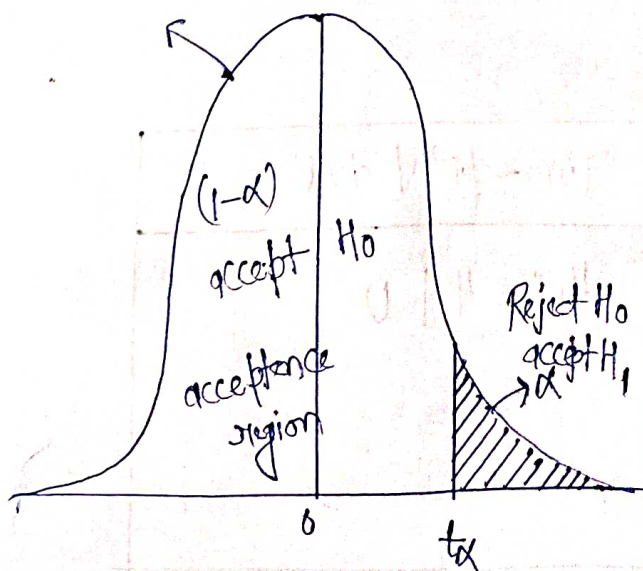 (1-α)
accept H0
acceptence
region
Reject H0
accept H1
α
0
tα